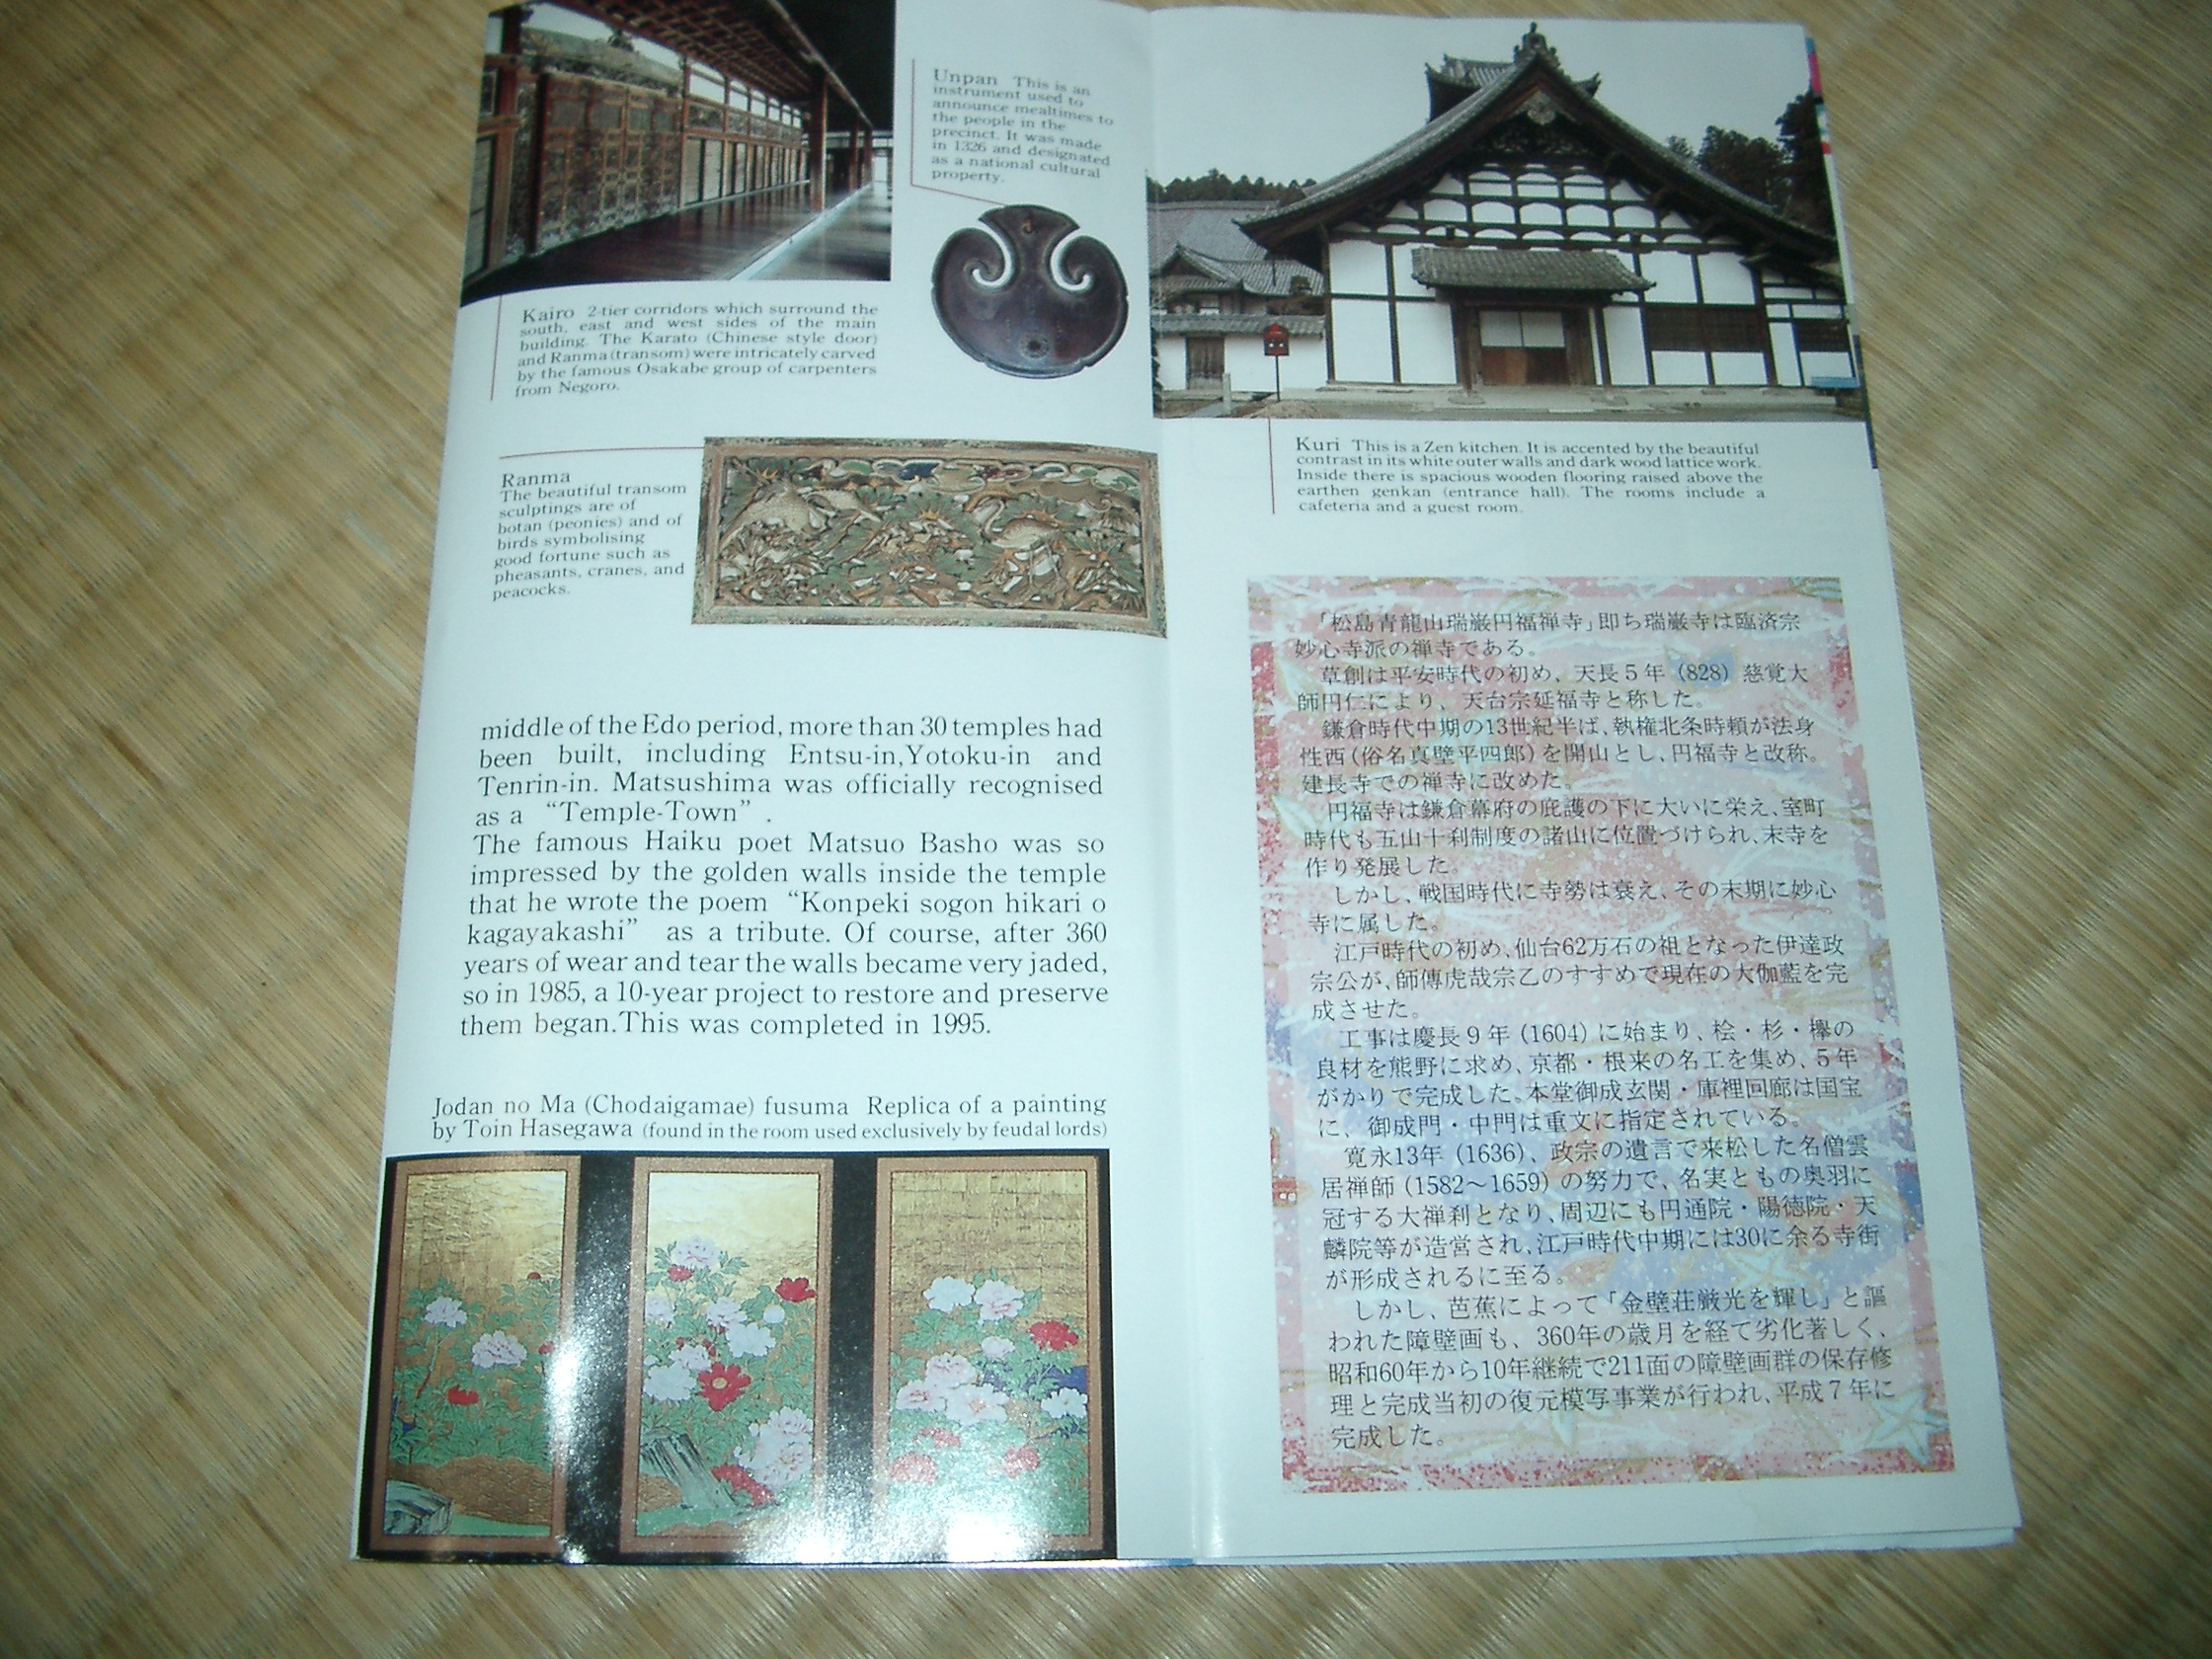 Unpan This is an
instrument used to
announce mealtimes to
the people in the
precinct. It was made
in 1326 and designated
as a national cultural
property.
Kairo 2-tier corridors which surround the
south, east and west sides of the main
building. The Karato (Chinese style door)
and Ranma (transom) were intricately carved
by the famous Osakabe group of carpenters
from Negoro.
Ranma
The beautiful transom
sculptings are of
botan (peonies) and of
birds symbolising
good fortune such as
pheasants, cranes, and
peacocks.
middle of the Edo period, more than 30 temples had
been built, including Entsu-in,Yotoku-in and
Tenrin-in. Matsushima was officially recognised
as a “Temple-Town” .
The famous Haiku poet Matsuo Basho was so
impressed by the golden walls inside the temple
that he wrote the poem “Konpeki sogon hikari o
kagayakashi” as a tribute. Of course, after 360
years of wear and tear the walls became very jaded,
so in 1985, a 10-year project to restore and preserve
them began.This was completed in 1995.
Jodan no Ma (Chodaigamae) fusuma Replica of a painting
by Toin Hasegawa (found in the room used exclusively by feudal lords)
Kuri This is a Zen kitchen. It is accented by the beautiful
contrast in its white outer walls and dark wood lattice work.
Inside there is spacious wooden flooring raised above the
earthen genkan (entrance hall). The rooms include a
cafeteria and a guest room.
「松島青龍山瑞巌円福禅寺」即ち瑞巌寺は臨済宗
妙心寺派の禅寺である。
草創は平安時代の初め、天長5年(828)慈覚大
師円仁により、天台宗延福寺と称した。
鎌倉時代中期の13世紀半ば、執権北条時頼が法身
性西(俗名真壁平四郎)を開山とし、円福寺と改称。
建長寺での禅寺に改めた。
円福寺は鎌倉幕府の庇護の下に大いに栄え、室町
時代も五山十刹制度の諸山に位置づけられ、末寺を
作り発展した。
しかし、戦国時代に寺勢は衰え、その末期に妙心
寺に属した。
江戸時代の初め、仙台62万石の祖となった伊達政
宗公が、師傅虎哉宗乙のすすめで現在の大伽藍を完
成させた。
工事は慶長9年(1604)に始まり、桧・杉・欅の
良材を熊野に求め、京都・根来の名工を集め、5年
がかりで完成した。本堂御成玄関・庫裡回廊は国宝
に、御成門・中門は重文に指定されている。
寛永13年(1636)、政宗の遺言で来松した名僧雲
居禅師(1582〜1659)の努力で、名実ともの奥羽に
冠する大禅刹となり、周辺にも円通院・陽徳院・天
麟院等が造営され、江戸時代中期には30に余る寺街
が形成されるに至る。
しかし、芭蕉によって「金壁荘厳光を輝し」と謳
われた障壁画も、360年の歳月を経て劣化著しく、
昭和60年から10年継続で211面の障壁画群の保存修
理と完成当初の復元模写事業が行われ、平成7年に
完成した。